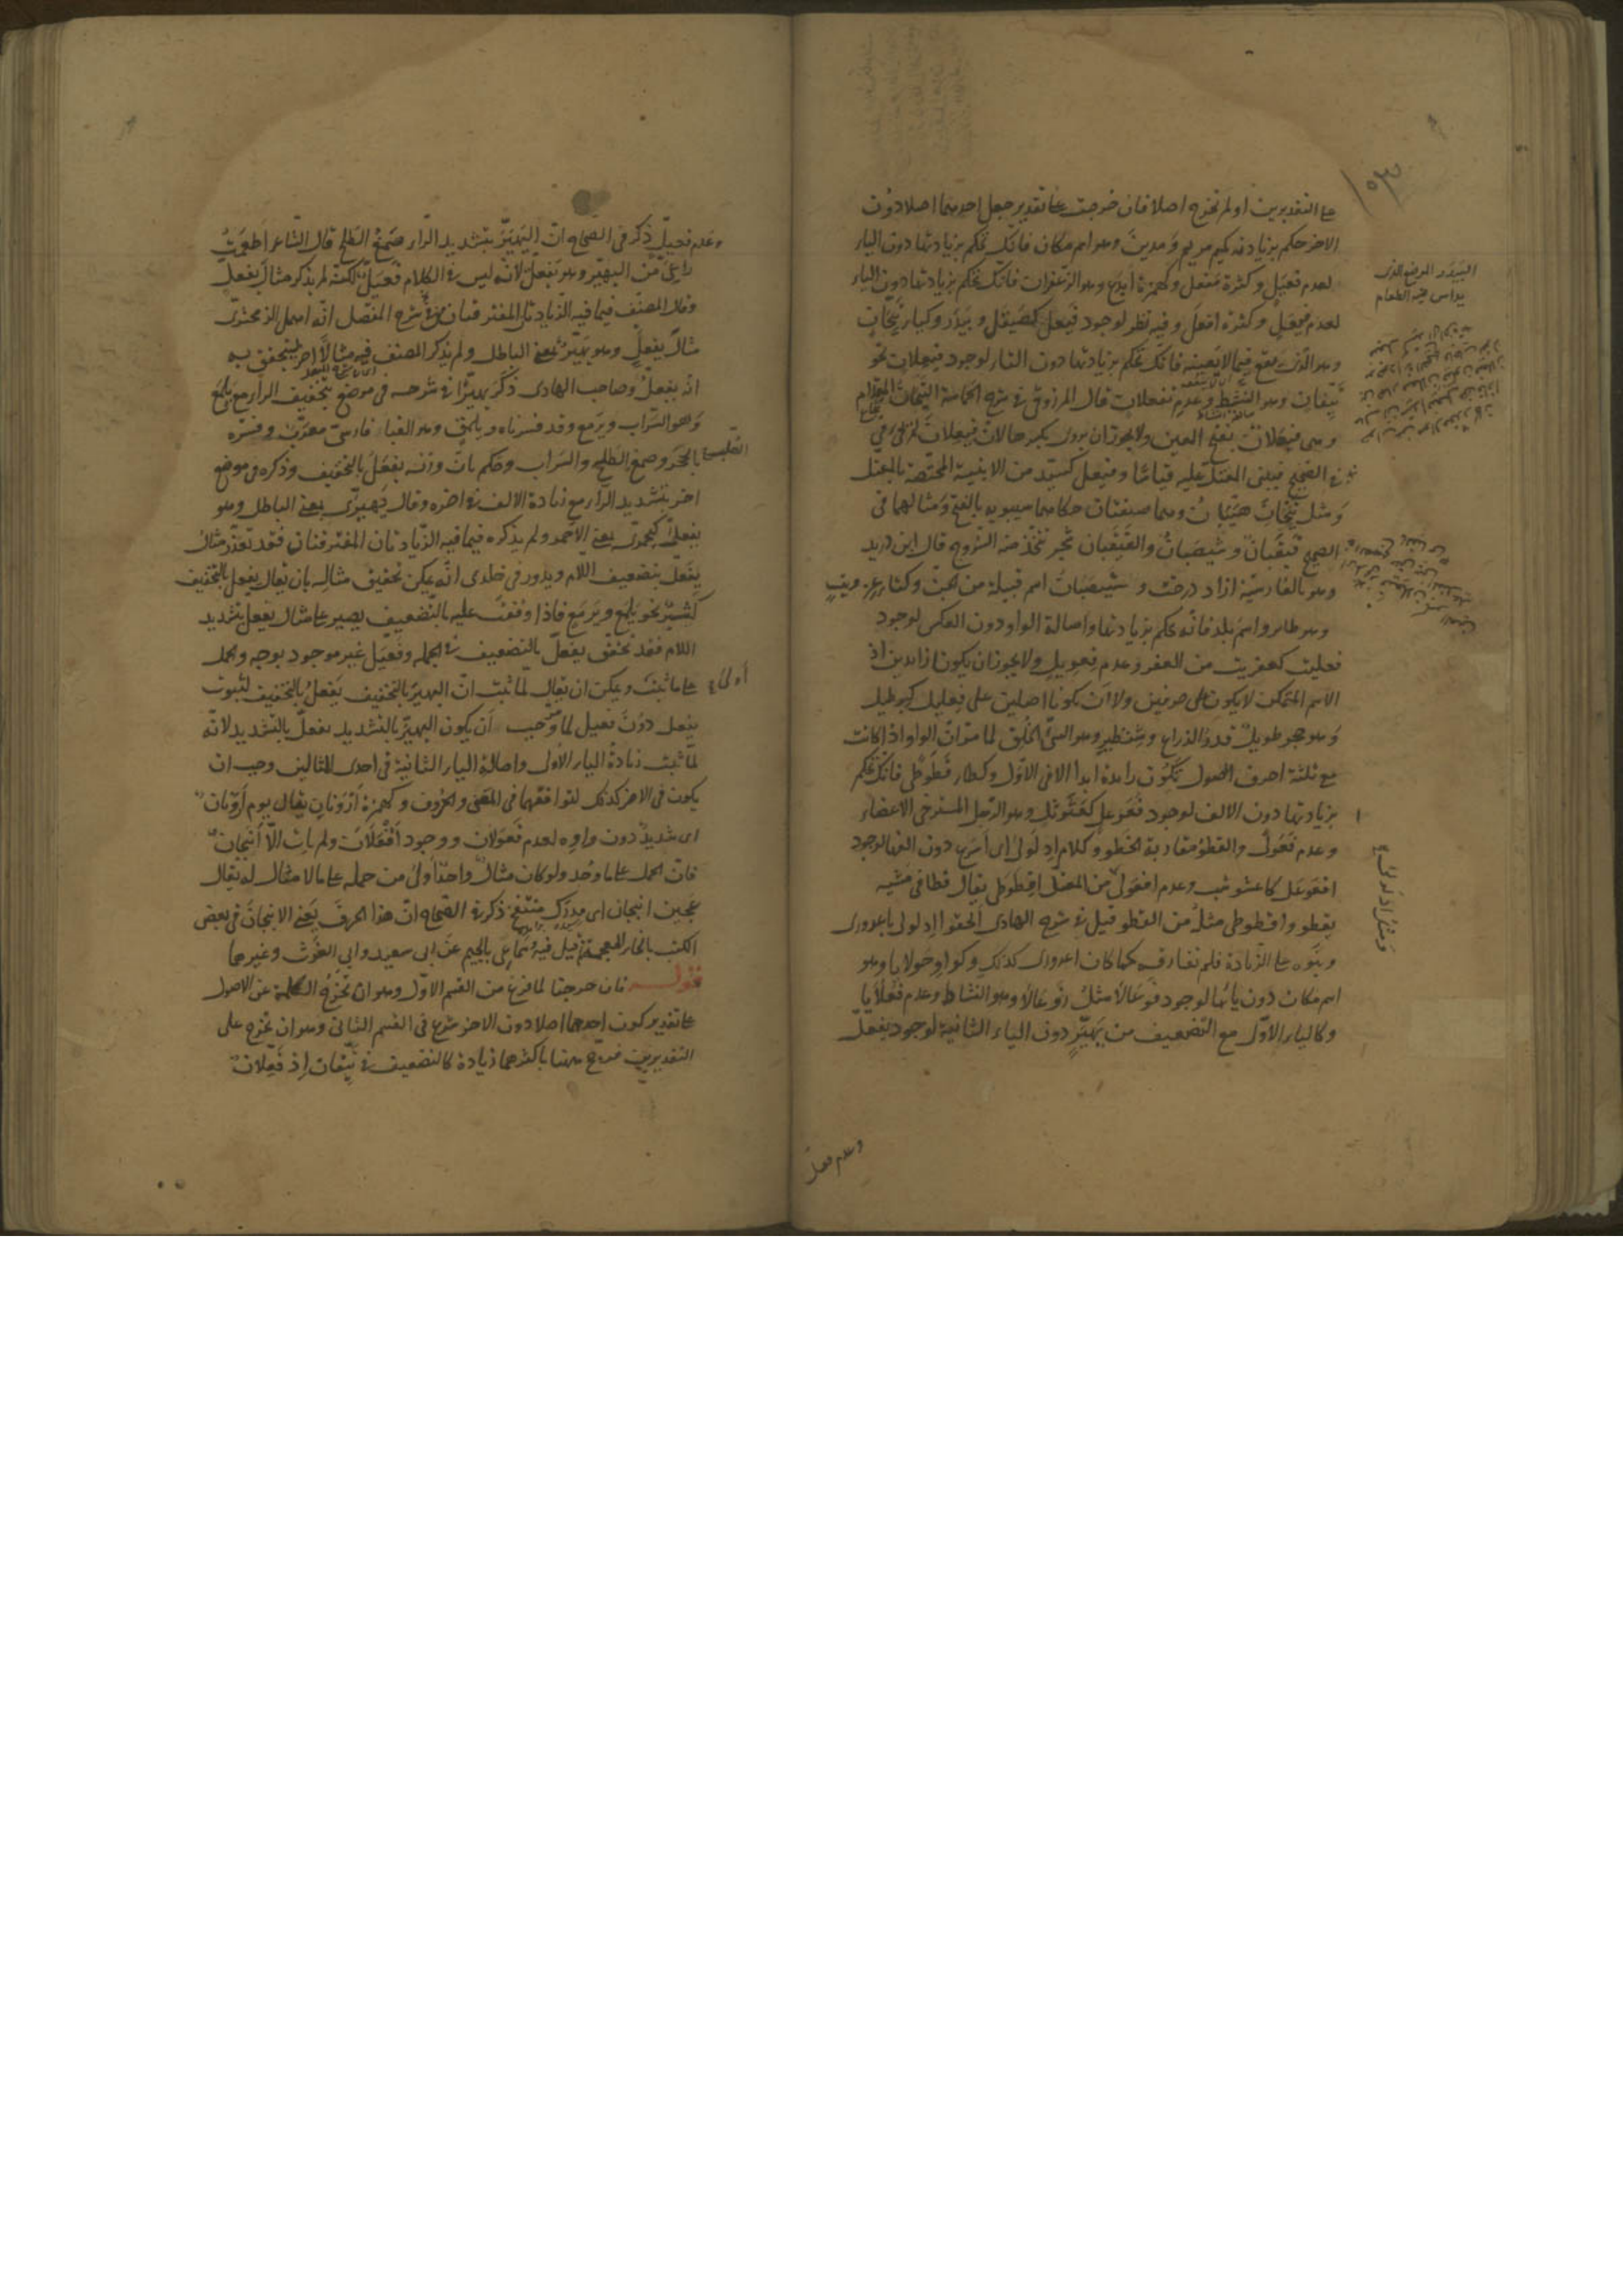 على التقديرين او لم تخرج اصلا فان خرجت على تقدير جعل احدهما اصلا دون
الاخر حكم بزيادته كميم مريم ومدين وهو اسم مكان فانك تحكم بزيادتها دون الياء
لعدم فعيل وكثرة مفعل وكهمزة ايدع وهو الزعفران فانك تحكم بزيادتها دون الياء
لعدم فيعل وكثرة افعل وفيه نظر لوجود فيعل كصيقل وبيدر وكياء تيحان
وهو الذي يقع فيما لا يعنيه فانك تحكم بزيادتها دون التاء لوجود فيعلان نحو
تيفان وهو النشيط وعدم تفعلان قال المرزوقي في شرح الحماسة التيحان المقدام
وهى فيعلان بفتح العين ولا يجوز ان يروى بكسرها لان فيعلان لم يجئ
في الصحيح فيبنى المعتل عليه قياسا وفيعل كسيد من الابنية المختصة بالمعتل
ومثل تيحان هيبان وهما صفتان حكاهما سيبويه بالفتح ومثالهما في
الصحيح قيقبان وشيصبان والقيقبان شجر تتخذ منه السروج قال ابن دريد
وهو بالفارسية ازاد درخت وشيصبان اسم قبيلة من الجن وكتاء عزويت
وهو طائر واسم بلد فانه يحكم بزيادتها واصالة الواو دون العكس لوجود
فعليت كعفريت من العفر وعدم فعويل ولا يجوز ان يكونا زايدين اذ
الاسم المتمكن لا يكون على حرفين ولا ان يكونا اصليين على فعليل كبرطيل
وهو حجر طويل قدر الذراع وشنظير وهو السيئ الخلق لما مر ان الواو اذا كانت
مع ثلثة احرف اصول تكون زايدة ابدا الا في الاول وكطاء قطوطى فانك تحكم
بزيادتها دون الالف لوجود فعوعل كعثوثل وهو الرجل المسترخى الاعضاء
وعدم فعولى والقطو مقاربة الخطو وكلام ادلولى اى اسرع دون الفها لوجود
افعوعل كاعشوشب وعدم افعولى من المفصل اقطوطى يقال قطا في مشيه
يقطو واقطوطى مثله من القطو قيل في شرح الهادى الحقوا ادلولى باعرورى
وبنوه على الزيادة فلم تفارقه كما كان اعرورى كذلك وكواو حولايا وهو
اسم مكان دون يائها لوجود فوعالا مثل زوعالا وهو النشاط وعدم فعلايا
وكالياء الاول مع التضعيف من يهير دون الياء الثانية لوجود يفعل
وعدم فعيل
البيدر الموضع الذى
يداس فيه الطعام
وعدم فعيل ذكر في الصحاح ان اليهير بتشديد الراء صمغ الطلح قال الشاعر اطعمت
راعى من اليهير وهو يفعل لانه ليس في الكلام فعيل لكنه لم يذكر مثال يفعل
وقال المصنف فيما فيه الزيادتان المفترقتان من شرح المفصل انه اهمل الزمخشرى
مثال يفعل وهو يهير بمعنى الباطل ولم يذكر المصنف فيه مثالا اخر ليتحقق به
انه يفعل وصاحب الهادى ذكر يهيرا في شرحه في موضع بتخفيف الراء مع يلمع
وهو السراب ويرمع وقد فسرناه ويلمق وهو القباء فارسى معرب وفسره
بالحجر وصمغ الطلح والسراب وحكم بان وزنه يفعل بالتخفيف وذكره في موضع
اخر بتشديد الراء مع زيادة الالف في اخره وقال يهيرى بمعنى الباطل وهو
يفعلى كيحمرى بمعنى الاحمر ولم يذكره فيما فيه الزيادتان المفترقتان فقد تعذر مثال
يفعل بتضعيف اللام ويدور في خلدى انه يمكن تحقيق مثاله بان يقال يفعل بالتخفيف
كثير نحو يلمع ويرمع فاذا وقفت عليه بالتضعيف يصير على مثال يفعل بتشديد
اللام فقد تحقق يفعل بالتضعيف في الجملة وفعيل غير موجود بوجه والحمل
على ما ثبت اولى ويمكن ان يقال لما ثبت ان اليهير بالتخفيف يفعل بالتخفيف لثبوت
يفعل دون فعيل لما مر وجب ان يكون اليهير بالتشديد يفعل بالتشديد لانه
لما ثبت زيادة الياء الاولى واصالة الياء الثانية في احدى المثالين وجب ان
يكون في الاخر كذلك لتوافقهما في المعنى والحروف وكهمزة ارونان يقال يوم ارونان
اى شديد دون واوه لعدم فعولان ووجود افعلان ولم يات الا انبجان
فان الحمل على ما وجد ولو كان مثالا واحدا اولى من حمله على ما لا مثال له يقال
عجين انبجان اى مدرك منتفخ ذكر في الصحاح ان هذا الحرف يعنى الانبجان في بعض
الكتب بالخاء المعجمة وسماعى بالجيم عن ابى سعيد وابى الغوث وغيرهما
قوله فان خرجتا لما فرغ من القسم الاول وهو ان تخرج الكلمة عن الاصول
على تقدير كون احدهما اصلا دون الاخر شرع في القسم الثانى وهو ان تخرج على
التقديرين فرجح ههنا باكثرهما زيادة كالتضعيف في تيفان اذ فيعلان